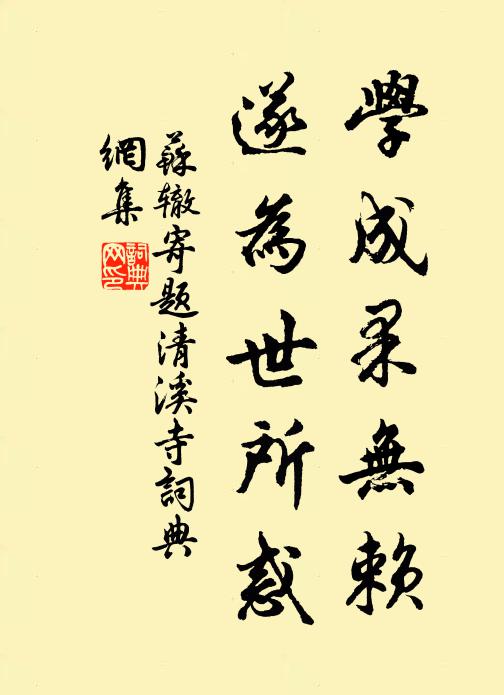 學成果無賴
遂為世所惑
蘇辙寄题清溪寺詞典
網集
詞典
网印